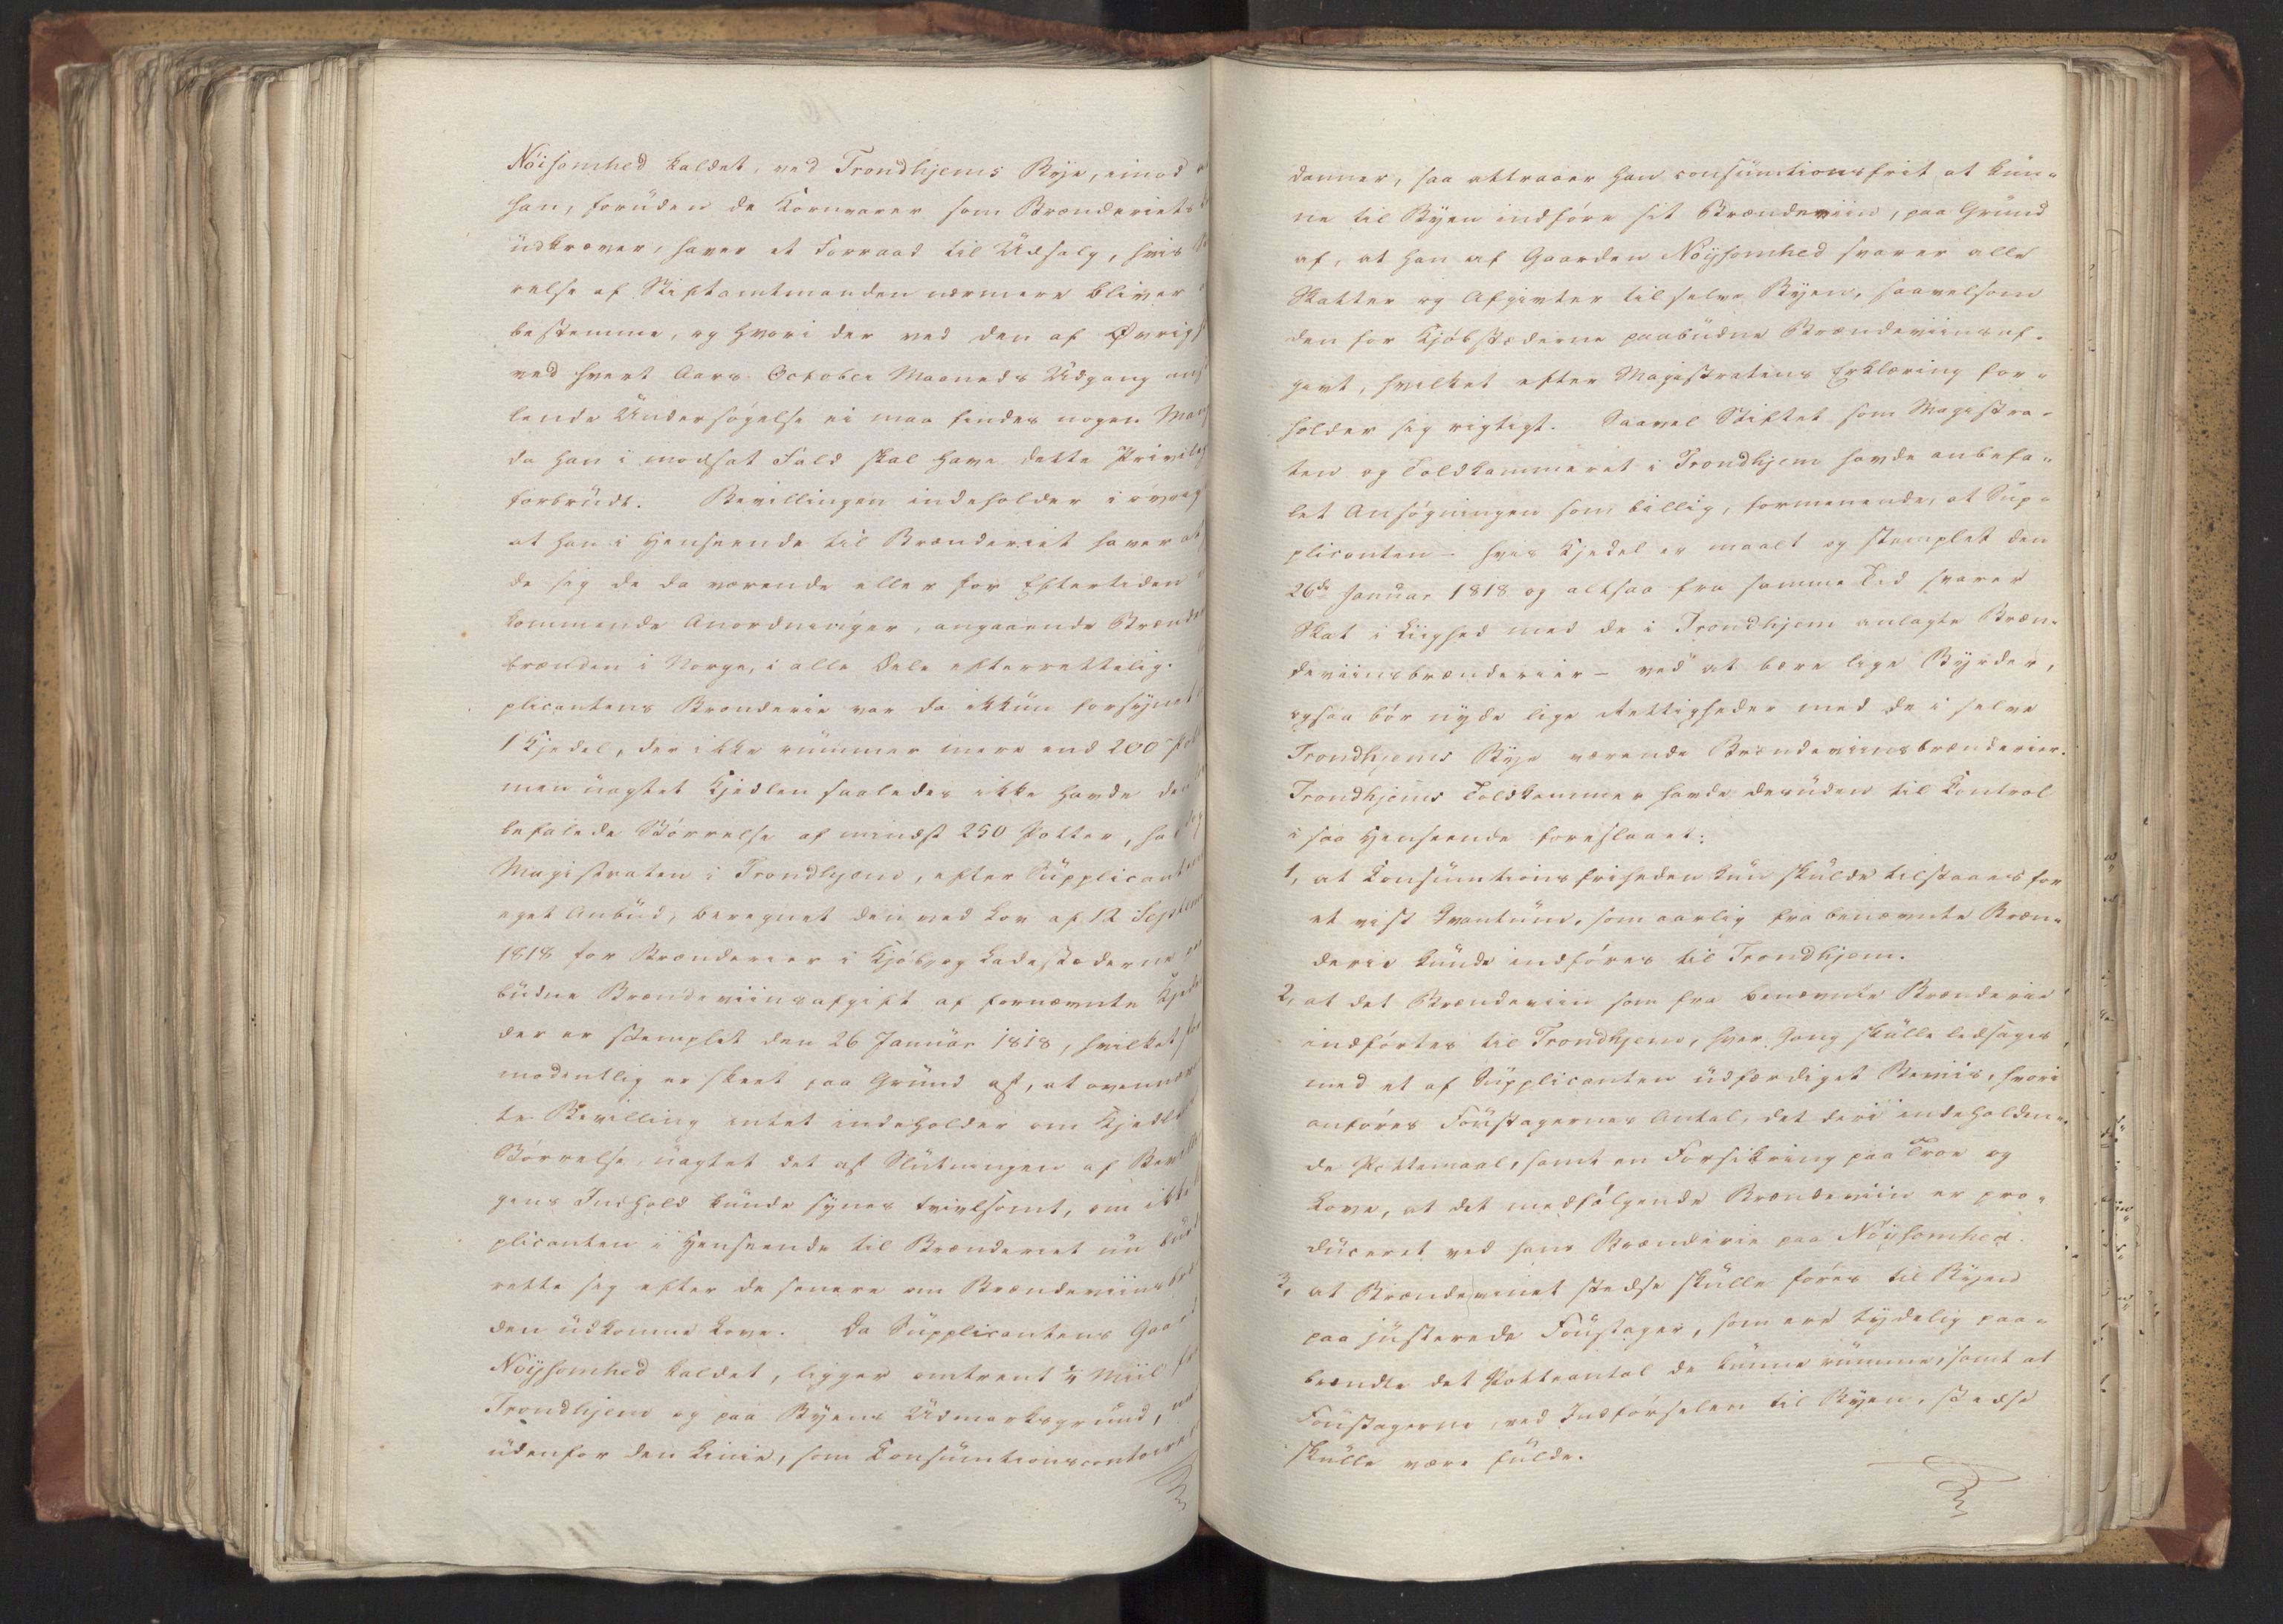 Nöisomhed kaldet, ved Trondhjems Bye, imod
han, foruden de Kornvarer som Brænderiets
udkræver, haver et Forraad til Udsalg, hvis
relse af Stiftamtmanden nærmere bliver
bestemme, og hvori der ved den af Øvrig
ved hvert Aars October Maaneds Udgang
lende Undersøgelse ei maa findes nogen Man
da han i modsat Fald skal have dette Privileg
forbrudt. Bevillingen indeholder i øvrig
at han i Henseende til Brænderiet haver at
de sig de da værende eller for Eftertiden
kommende Anordninger, angaaende Brænde
brænden i Norge, i alle Dele efterrettelig.
plicantens Brænderie var da ikkun forsynet
1 Kjedel, der ikke rummer mere end 200 Pot
men uagtet Kjedlen saaledes ikke havde den
befalede Størrelse af mindst 250 Potter, ha
Magistraten i Trondhjem, efter Supplicanten
eget Anbud, beregnet den ved Lov af 12 Septem
1818 for Brænderier i Kjøb og Ladestæderne
budne Brændeviinsafgift af fornævnte Kjedel
der er stemplet den 26 Januar 1818, hvilket for
modentlig er skeet paa Grund af, at ovennævn
te Bevilling intet indeholder om Kjedlens
Størrelse, uagtet det af Slutningen af Bevillin
gens Indhold kunde synes tvivlsomt, om ikke
plicanten i Henseende til Brænderiet nu burd
rette sig efter de senere om Brændeviinsbræn
den udkomne Love. Da Supplicantens Gaard
Nöysomhed kaldet, ligger omtrent ¼ Miil fra
Trondhjem og paa Byens Udmarksgrund, men
udenfor den Linie, som Consumtionscontoiret
danner, saa attraaer han consumtionsfrit at kun-
ne til Byen indføre sit Brændeviin, paa Grund
af, at han af Gaarden Nöysomhed svarer alle
Skatter og Afgivter til selve Byen, saavelsom
den for Kjøbstæderne paabudne Brændeviinsaf-
givt, hvilket efter Magistratens Erklæring for-
holder sig rigtigt. Saavel Stiftet som Magistra-
ten og Toldkammeret i Trondhjem havde anbefa-
let Ansøgningen som billig, formenende, at Sup-
plicanten - hvis Kjedel er maalt og stemplet den
26de Januar 1818 og altsaa fra samme Tid svarer
Skat i Liighed med de i Trondhjem anlagte Bræn-
deviinsbrænderier - ved at bære lige Byrder,
ogsaa bør nyde lige Rettigheder med de i selve
Trondhjems Bye værende Brændeviinsbrænderier.
Trondhjems Toldkammer havde desuden til Control
i saa Henseende foreslaaet:
1, at Consumtionsfriheden kun skulde tilstaaes for
et vist Qvantum, som aarlig fra benævnte Bræn-
derie kunde indføres til Trondhjem.
2, at det Brændeviin som fra benævnte Brænderie
indførtes til Trondhjem, hver Gang skulle ledsages
med et af Supplicanten udfærdiget Beviis, hvori
anføres Foustagernes Antal, det deri indeholden-
de Pottemaal, samt en Forsikring paa Troe og
Love, at det medfølgende Brændeviin er pro-
duceret ved hans Brænderie paa Nöysomhed.
3, at Brændevinet stedse skulle føres til Byen
paa justerede Foustager, som ere tydelig paa-
brændte det Potteantal de kunne rumme, samt at
Foustagerne ved Indførselen til Byen, stedse
skulle være fulde.